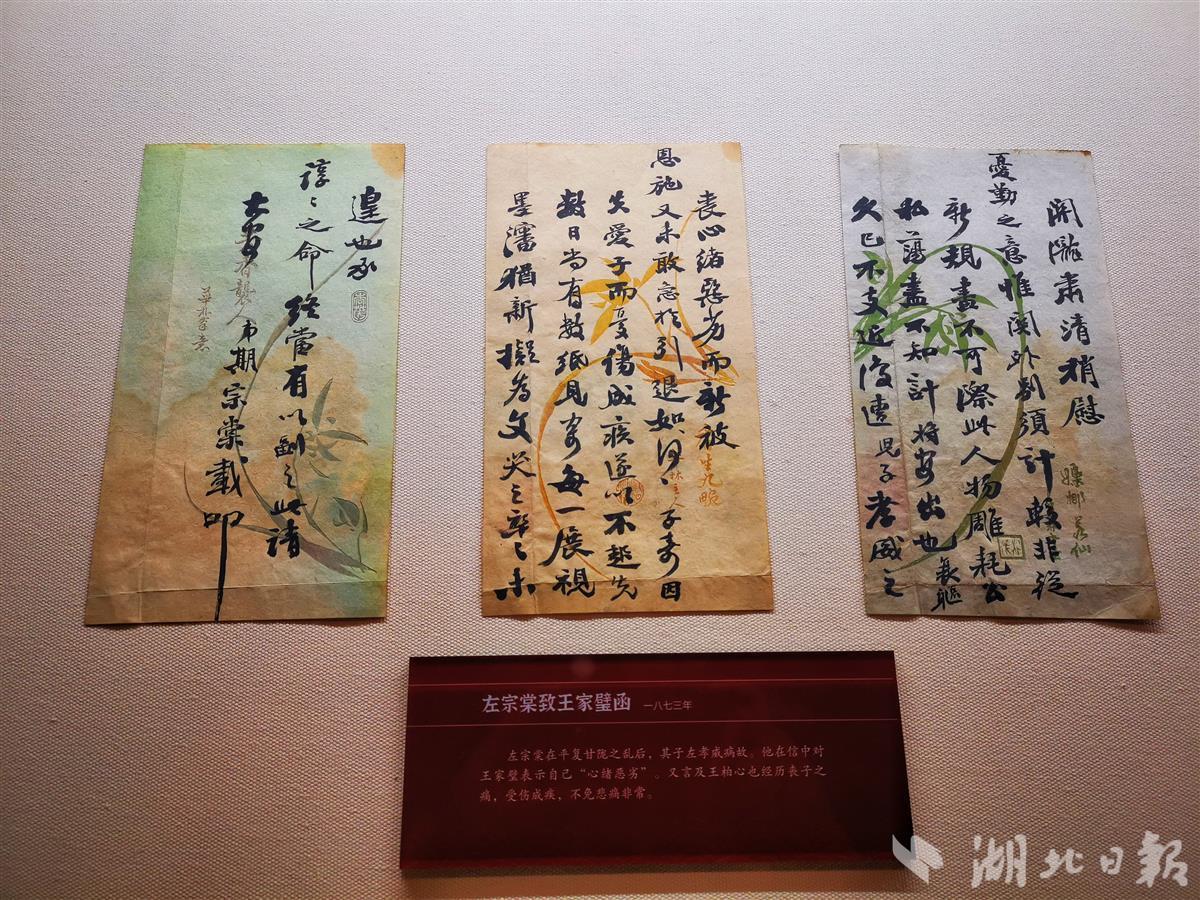 関隴肅清稍慰
憂勤之意惟関外須計非從
新規畫不可際此人物雕耗公
私蕩盡不知計將安出也衰軀
久已不支近復遭兒子孝威之
喪心緒惡劣而新被
恩施又未敢急於引退如何〻子壽因
失愛子而憂傷成疾遂以不起先
數日尚有數紙見寄每一展視
墨瀋猶新擬為文哭之卒〻未
遑也承
諄〻之命終當有以副之此請
大安 弟期宗棠載叩
春襲人
左宗棠致王家璧函 一八七三年
左宗棠在平复甘陇之乱后，其子左孝威病故。他在信中对
王家璧表示自己“心绪恶劣”。又言及王柏心也经历丧子之
痛，受伤成疾，不免悲痛非常。
湖北日報